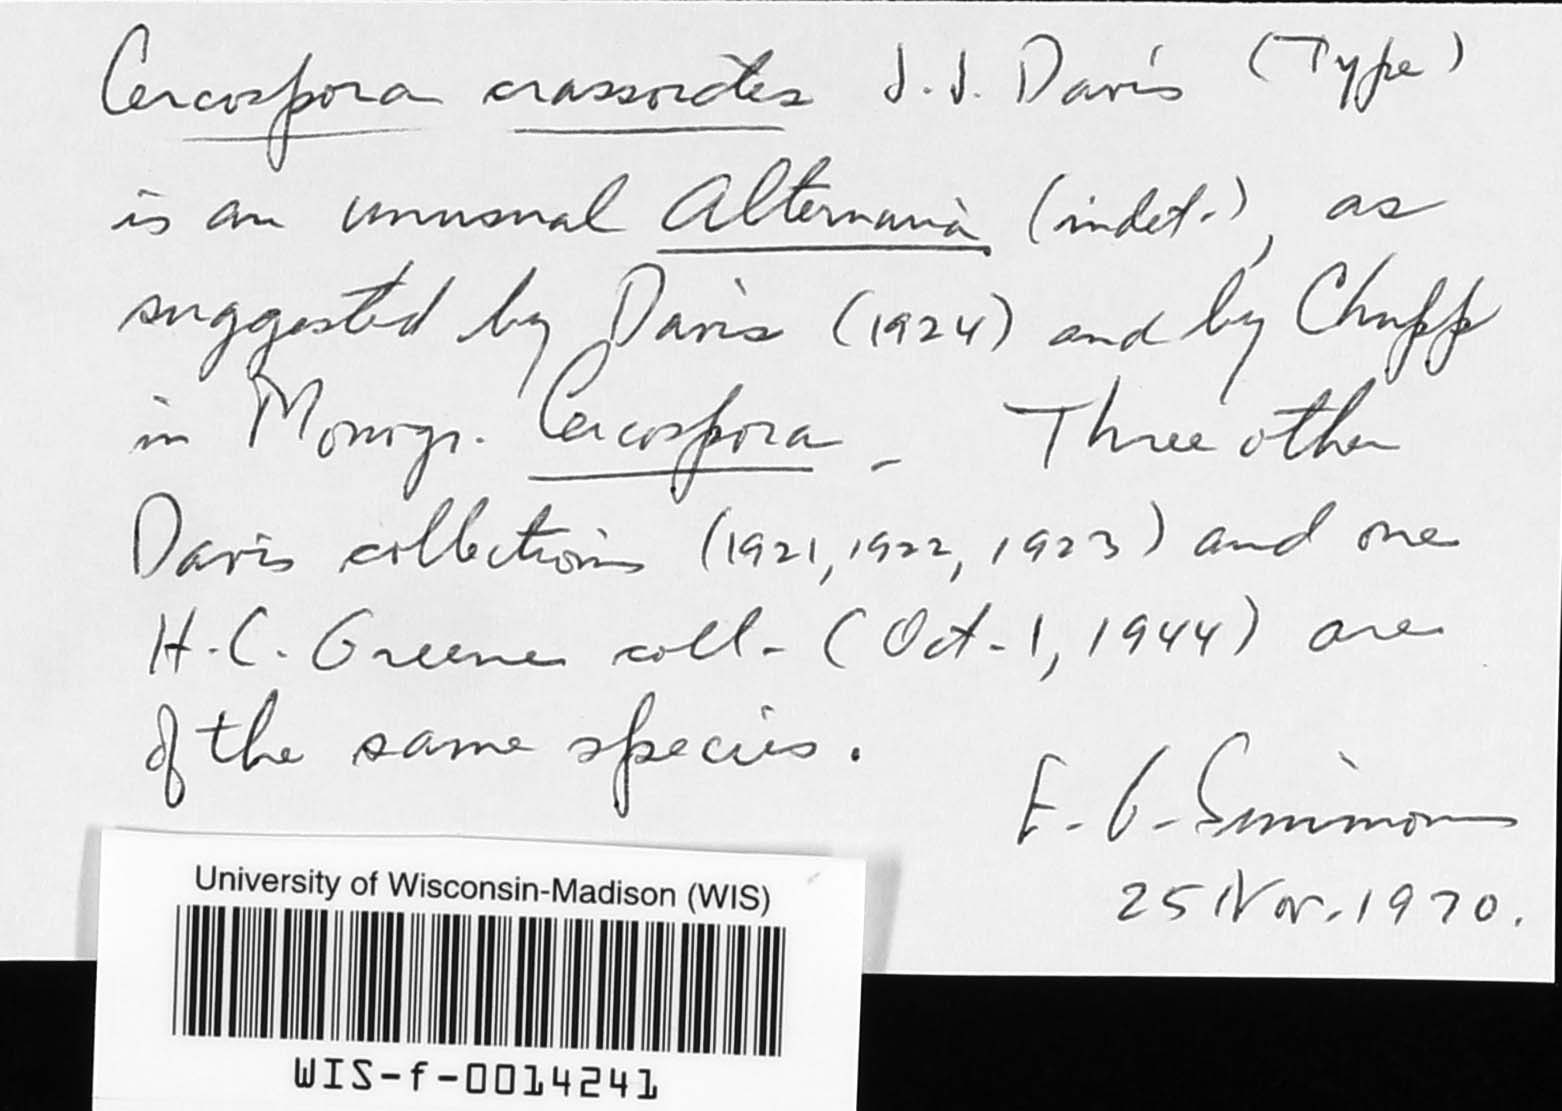 Cercospora crassoides J.J. Davis (Type)
is an unusual Alternaria (indet.), as
suggested by Davis (1924) and by Chupp
in Monogr. Cercospora. Three other
Davis collections (1921, 1922, 1923) and one
H.C. Greene coll. (Oct. 1, 1944) are
of the same species.
E. G. Simmons
25 Nov. 1970.
University of Wisconsin-Madison (WIS)
WIS-f-0014241